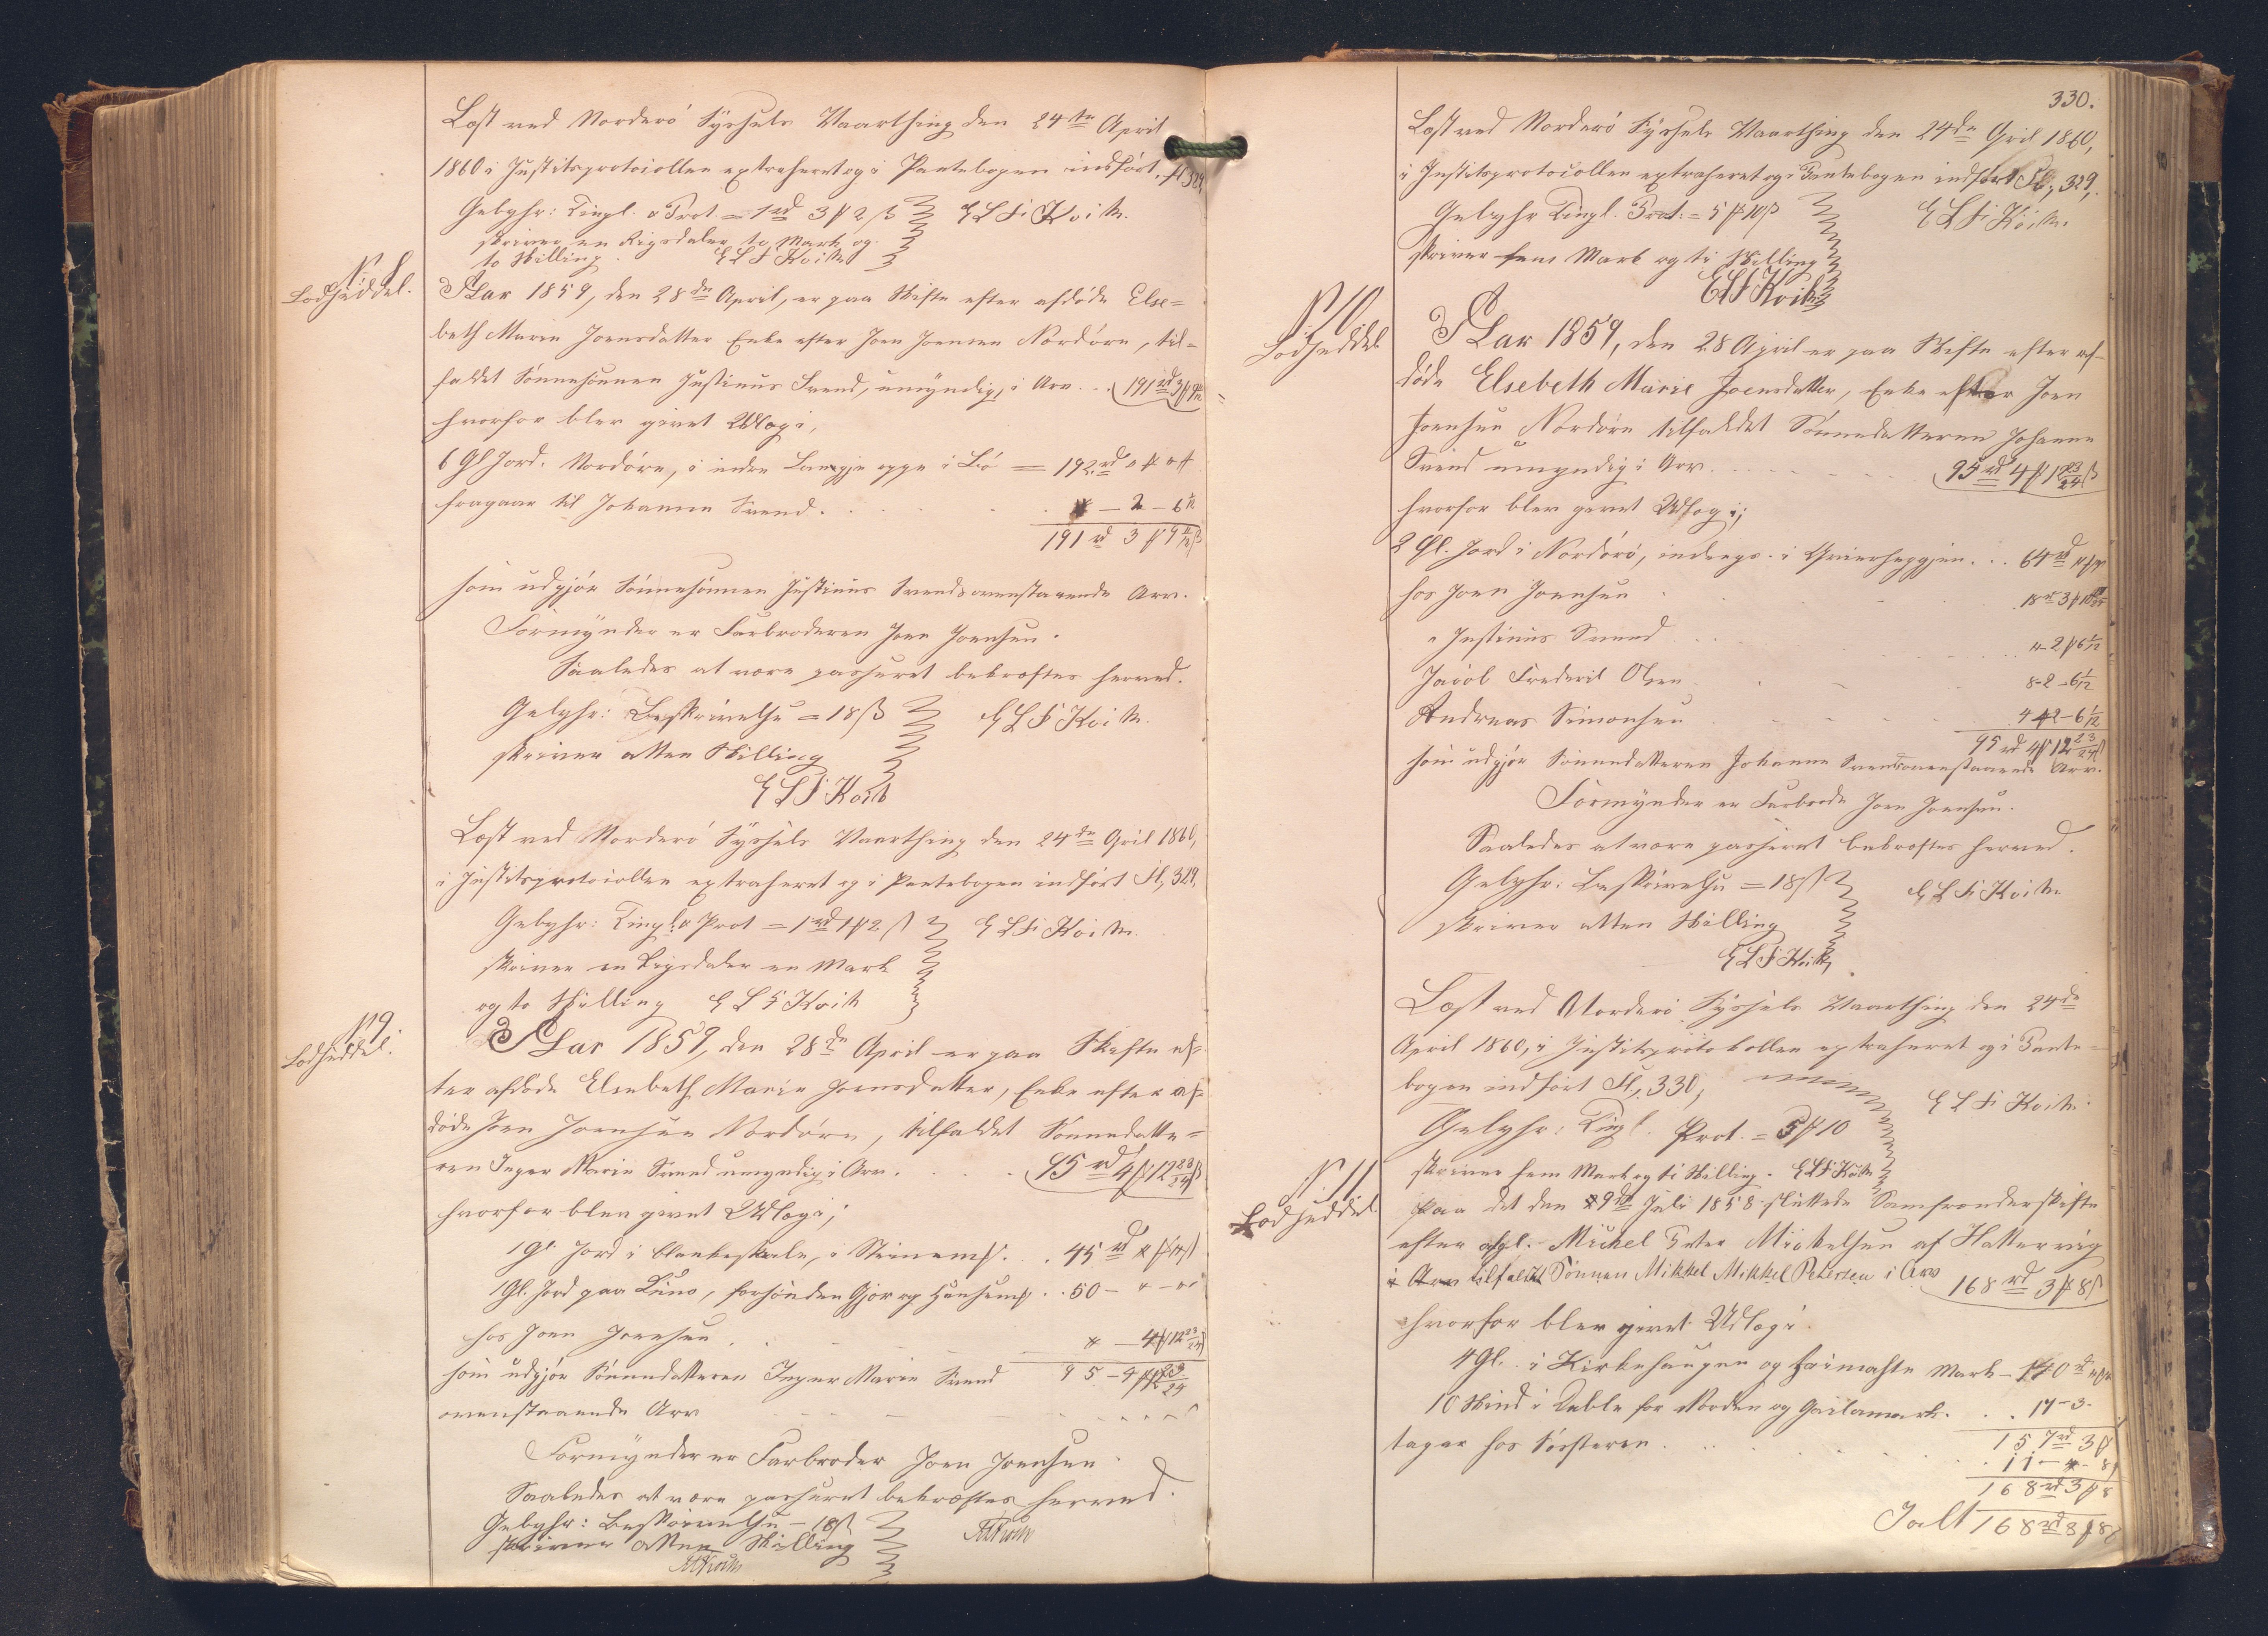 Læst ved Norderö Sysšels Vaarthing den 24de April
1860 i Justitsprotocollen extraheret og i Pantebogen indført, fl 329,
Gebyhr: Tingl. o Prot. = 1 rd 3 ₻ 2 ß ELF. Koit.
skriver en Rigsdaler to Mark og
to Skilling. ELF Koit
N. 8
Lodseddel.
Aar 1859, den 28de April, er paa Skifte efter afdøde Else=
beth Marie Joensdatter Enke efter Joen Joensen Nordöre, til=
faldet Sønnesønnen Justinus Svend, umyndig, i Arv . . 191 rd 3 ₻ 9
hvorfor blev givet Udlæg i,
6 Gl Jord. Nordöre, i indre uppe i = 192 rd " ₻ " ß
fragaar til Johanna Svend . . . " — 2 — 6 1/12
191 rd 3 ₻ 9 11/12 ß
som udgjør Sønnesønnen Justinus Svends ovenstaaende Arv.
Formynder er Farbroderen Joen Joensen.
Saaledes at være passeret bekræftes herved.
Gebyhr: Beskrivelse = 18 ß ELF. Koit.
skriver atten Skilling
ELF Koit
Læst ved Norderö Sysšels Vaarthing den 24de April 1860,
i Justitsprotocollen extraheret og i Pantebogen indført fl, 329,
Gebyhr: Tingl. o Prot = 1 rd 1 ₻ 2 ß ELF. Koit.
skriver en Rigsdaler en Mark
og to Skilling ELF Koit
N 9.
Lodseddel.
Aar 1859, den 28de April er paa Skifte ef=
ter afdøde Elsebeth Marie Joensdatter, Enke efter af=
døde Joen Joensen Nordöre, tilfaldet Sønnedatte=
ren Inger Marie Svend umyndig i Arv. . . 95 rd 4 ₻ 12 23/24 ß
hvorfor blev givet Udlæg i;
1 Gl. Jord i . . 45 rd " ₻ " ß
1 Gl. Jord paa Kuno, . . 50 — " — "
hos Joen Joensen . . " — 4 ₻ 12 23/24 ß
som udgjør Sønnedatteren Inger Marie Svend 95 — 4 ₻ 12 23/24
ovenstaaende Arv
Formynder er Farbroder Joen Joensen
Saaledes at være passeret bekræftes herved.
Gebyhr: Beskrivelse — 18 ß
skriver atten Skilling
330.
Læst ved Norderö Sysšels Vaarthing den 24de April 1860,
i Justitsprotocollen extraheret og i Pantebogen indført Fl, 329,
Gebyhr Tingl. Prot: = 5 ₻ 10 ß ELF. Koit.
skriver fem Mark og ti Skilling
ELF Koit
N. 10
Lodseddel
Aar 1859, den 28 April er paa Skifte efter af=
døde Elsebeth Marie Joensdatter, Enke efter Joen
Joensen Nordöre tilfaldet Sønnedatteren Johanne
Svend umyndig i Arv . . . 95 rd 4 ₻ 12 23/24 ß
hvorfor blev givet Udlæg i;
2 Gl. Jord i Norderö, . . . 64 rd " ₻ "
hos Joen Joensen . . . 18 rd 3 ₻ 10
" Justinus Svend . . . " — 2 ₻ 6 1/12
Jacob Frederik Olsen . . . 8 — 2 — 6 1/12
Andreas Simonsen . . . 4 — 2 — 6 1/12
95 rd 4 ₻ 12 23/24 ß
som udgjør Sønnedatteren Johanne Svends ovenstaaende Arv.
Formynder er Farbrode Joen Joensen.
Saaledes at være passeret bekræftes herved.
Gebyhr: Beskrivelse = 18 ß ELF. Koit.
skriver atten Skilling
ELF Koit
Læst ved Norderö Sysšels Vaarthing den 24de
April 1860, i Justitsprotokollen extraheret og i Pante=
bogen indført Fl, 330, ELF. Koit.
Gebyhr: Tingl. Prot. = 5 ₻ 10
skriver fem Mark og ti Skilling. ELF Koit
N. 11
Lodseddel
Paa det den 29de Juli 1858 sluttede Samfrænderskifte
efter afgl. Mickel Peter Mickelsen af Hattervig
i Arv tilfaldt Sønnen Mikkel Mikkel Petersen i Arv 168 rd 3 ₻ 8 ß
hvorfor blev givet Udlæg i
4 Gl. i Kirkehaugen og Mark — 140 rd " ₻ "
10 Skind i for Norden og . . 17 — 3 —
157 rd 3 ₻
tager hos Søsteren . . . 11 — " — 8 ß
168 rd 3 ₻ 8
Ialt 168 rd 3 ₻ 8 ß